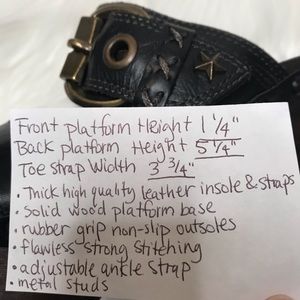 Front platform Height 1 1/4"
Back platform Height 5 1/4"
Toe strap Width 3 3/4"
• Thick high quality leather insole & straps
• Solid wood platform base
• rubber grip non-slip outsoles
• flawless strong stitching
• adjustable ankle strap
• metal studs